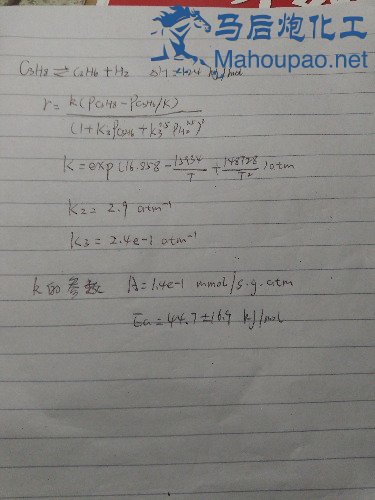 马后炮化工
Mahoupao.net
C3H8 ⇌ C3H6 + H2 ΔH=124 kJ/mol
r = k(PC3H8 - PC3H6/K)
(1+K2PC3H6 + K3^0.5 PH2^0.5)^2
K = exp(16.858 - 15934/T + 148728/T²) atm
K2 = 2.9 atm⁻¹
K3 = 2.4e-1 atm⁻¹
k的参数 A=1.4e-1 mmol/s.g.atm
Ea=44.7±16.9 kJ/mol